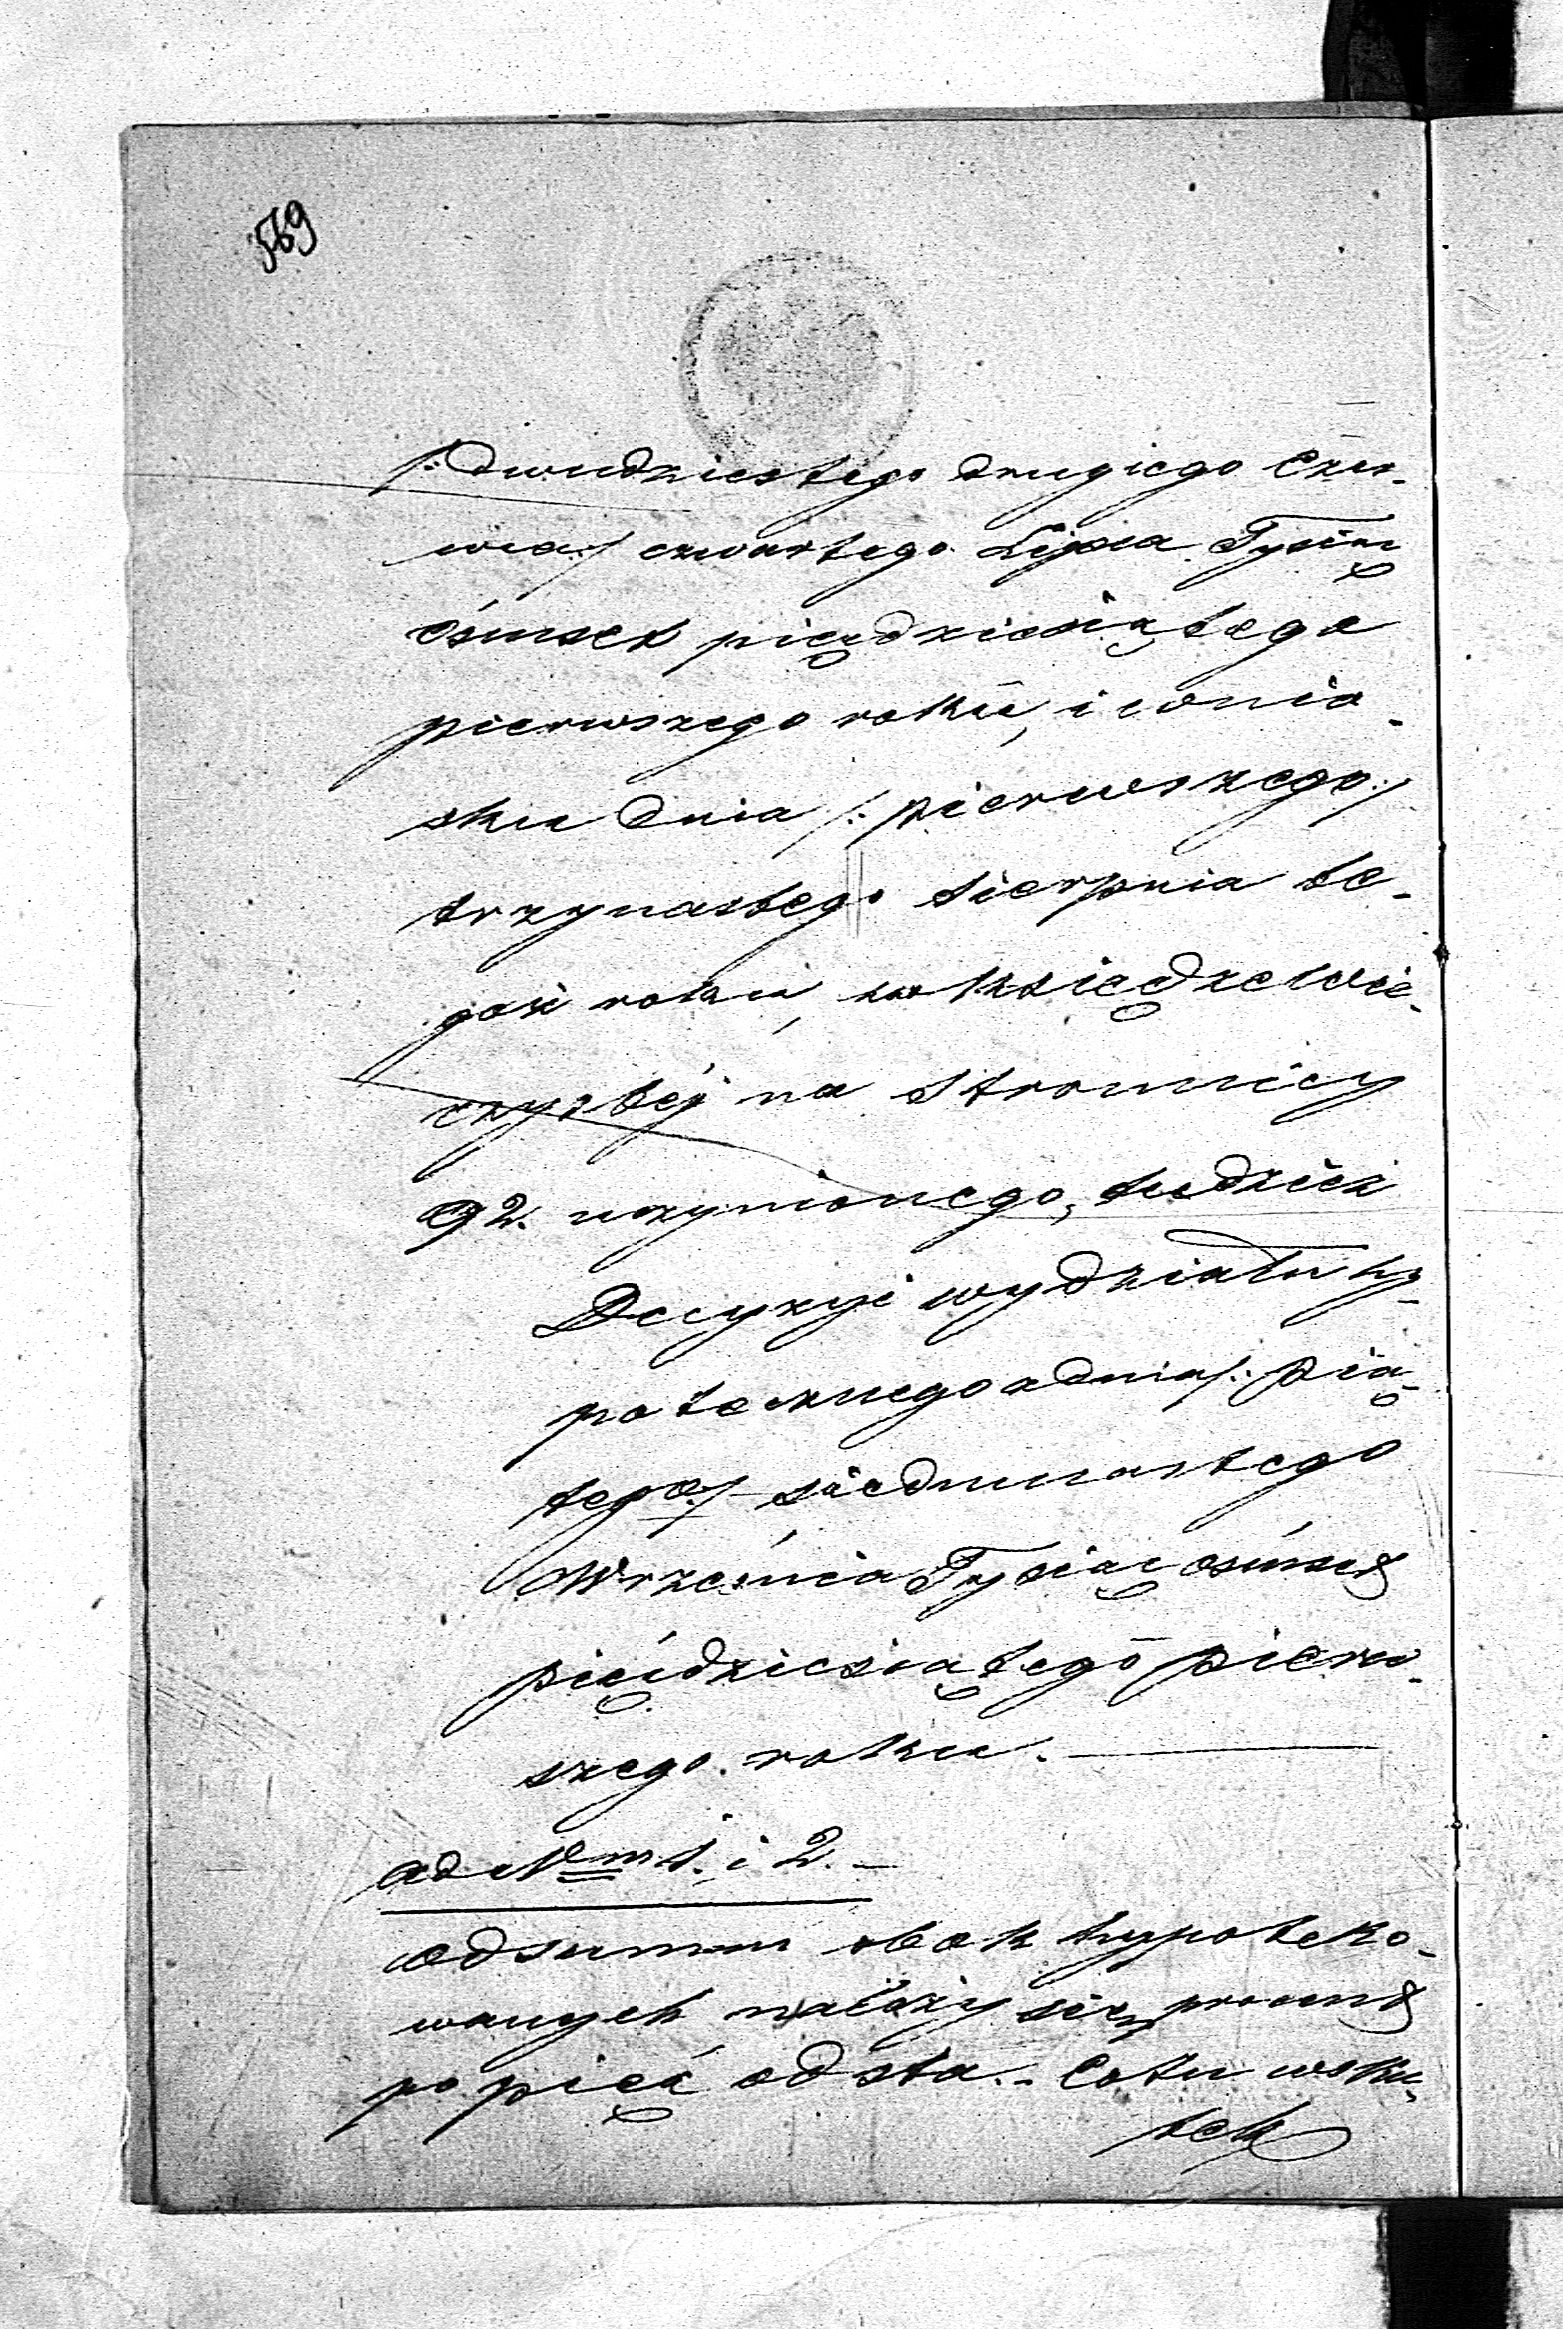 569
/: dwudziestego drugiego Czer-
wca :/ czwartego Lipca Tysiąc
ośmset pięćdziesiątego
pierwszego roku, i wnio-
sku dnia /: pierwszego :/
trzynastego Sierpnia te-
goż roku, w Księdze wie-
czystéj na stronnicy
92. uczynionego, tudzież
Decyzyi wydziału hy-
potecznego z dnia /: pią-
tego :/ siedmnastego
Września Tysiąc ośmset
pięćdziesiątego pierw-
szego roku.
ad Num 1. i 2.
od summ obok hypoteko-
wanych należy się procent
po pięć od sta. - Co tu wsku-
tek